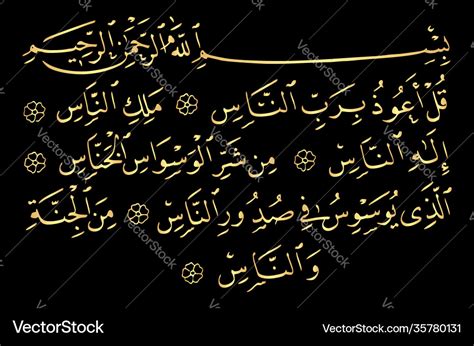 بِسْمِ اللَّهِ الرَّحْمَٰنِ الرَّحِيمِ
قُلْ أَعُوذُ بِرَبِّ ٱلنَّاسِ ۞ مَلِكِ ٱلنَّاسِ
إِلَٰهِ ٱلنَّاسِ ۞ مِن شَرِّ ٱلْوَسْوَاسِ ٱلْخَنَّاسِ ۞
ٱلَّذِى يُوَسْوِسُ فِى صُدُورِ ٱلنَّاسِ ۞ مِنَ ٱلْجِنَّةِ
وَٱلنَّاسِ ۞
VectorStock®
VectorStock.com/35780131